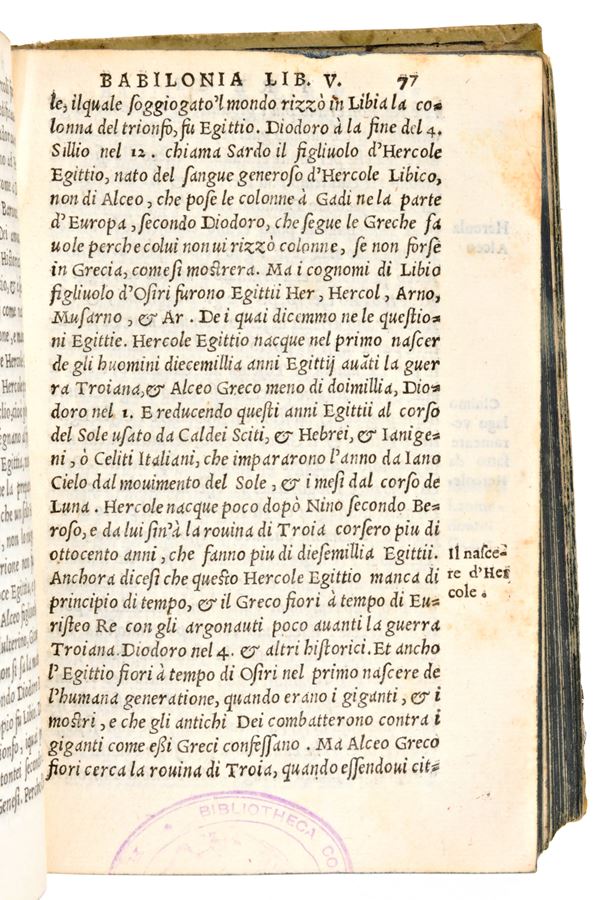 BABILONIA LIB. V. 77
le, ilquale soggiogato'l mondo rizzò in Libia la co=
lonna del trionfo, fu Egittio. Diodoro à la fine del 4.
Sillio nel 12. chiama Sardo il figliuolo d'Hercole
Egittio, nato del sangue generoso d'Hercole Libico,
non di Alceo, che pose le colonne à Gadi ne la parte
d'Europa, secondo Diodoro, che segue le Greche fa
uole perche colui non ui rizzò colonne, se non forse
in Grecia, come si mostrera. Ma i cognomi di Libio
figliuolo d'Osiri furono Egittii Her, Hercol, Arno,
Musarno, & Ar. De i quai dicemmo ne le questio=
ni Egittie. Hercole Egittio nacque nel primo nascer
de gli huomini diecemillia anni Egittij auāti la guer
ra Troiana, & Alceo Greco meno di doimillia, Dio=
doro nel 1. E reducendo questi anni Egittii al corso
del Sole usato da Caldei Sciti, & Hebrei, & Ianige=
ni, ò Celiti Italiani, che impararono l'anno da Iano
Cielo dal mouimento del Sole, & i mesi dal corso de
Luna. Hercole nacque poco dopò Nino secondo Be=
roso, e da lui sin'à la rouina di Troia corsero piu di
ottocento anni, che fanno piu di diesemillia Egittii.
Anchora dicesi che questo Hercole Egittio manca di
principio di tempo, & il Greco fiori à tempo di Eu=
risteo Re con gli argonauti poco auanti la guerra
Troiana. Diodoro nel 4. & altri historici. Et ancho
l'Egittio fiori à tempo di Osiri nel primo nascere de
l'humana generatione, quando erano i giganti, & i
mostri, e che gli antichi Dei combatterono contra i
giganti come essi Greci confessano. Ma Alceo Greco
fiori cerca la rouina di Troia, quando essendoui cit=
Il nasce=
re d'Her
cole.
BIBLIOTHECA CO